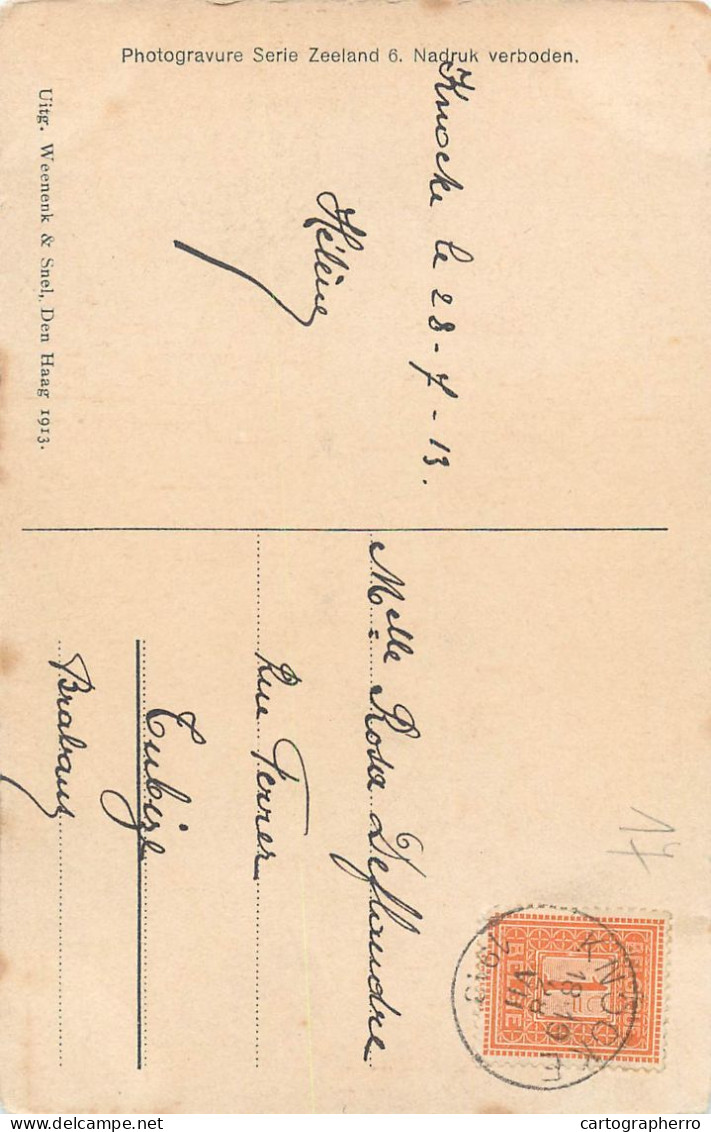 Photogravure Serie Zeeland 6. Nadruk verboden.
Uitg. Weenenk & Snel, Den Haag 1913.
Knocke le 28-7-13.
Hélène
Melle Rosa Deflandre
Rue Ferrer
Tubize
Brabant
17
KNOCKE
18-19
28
VII
1913
1
cartographerro